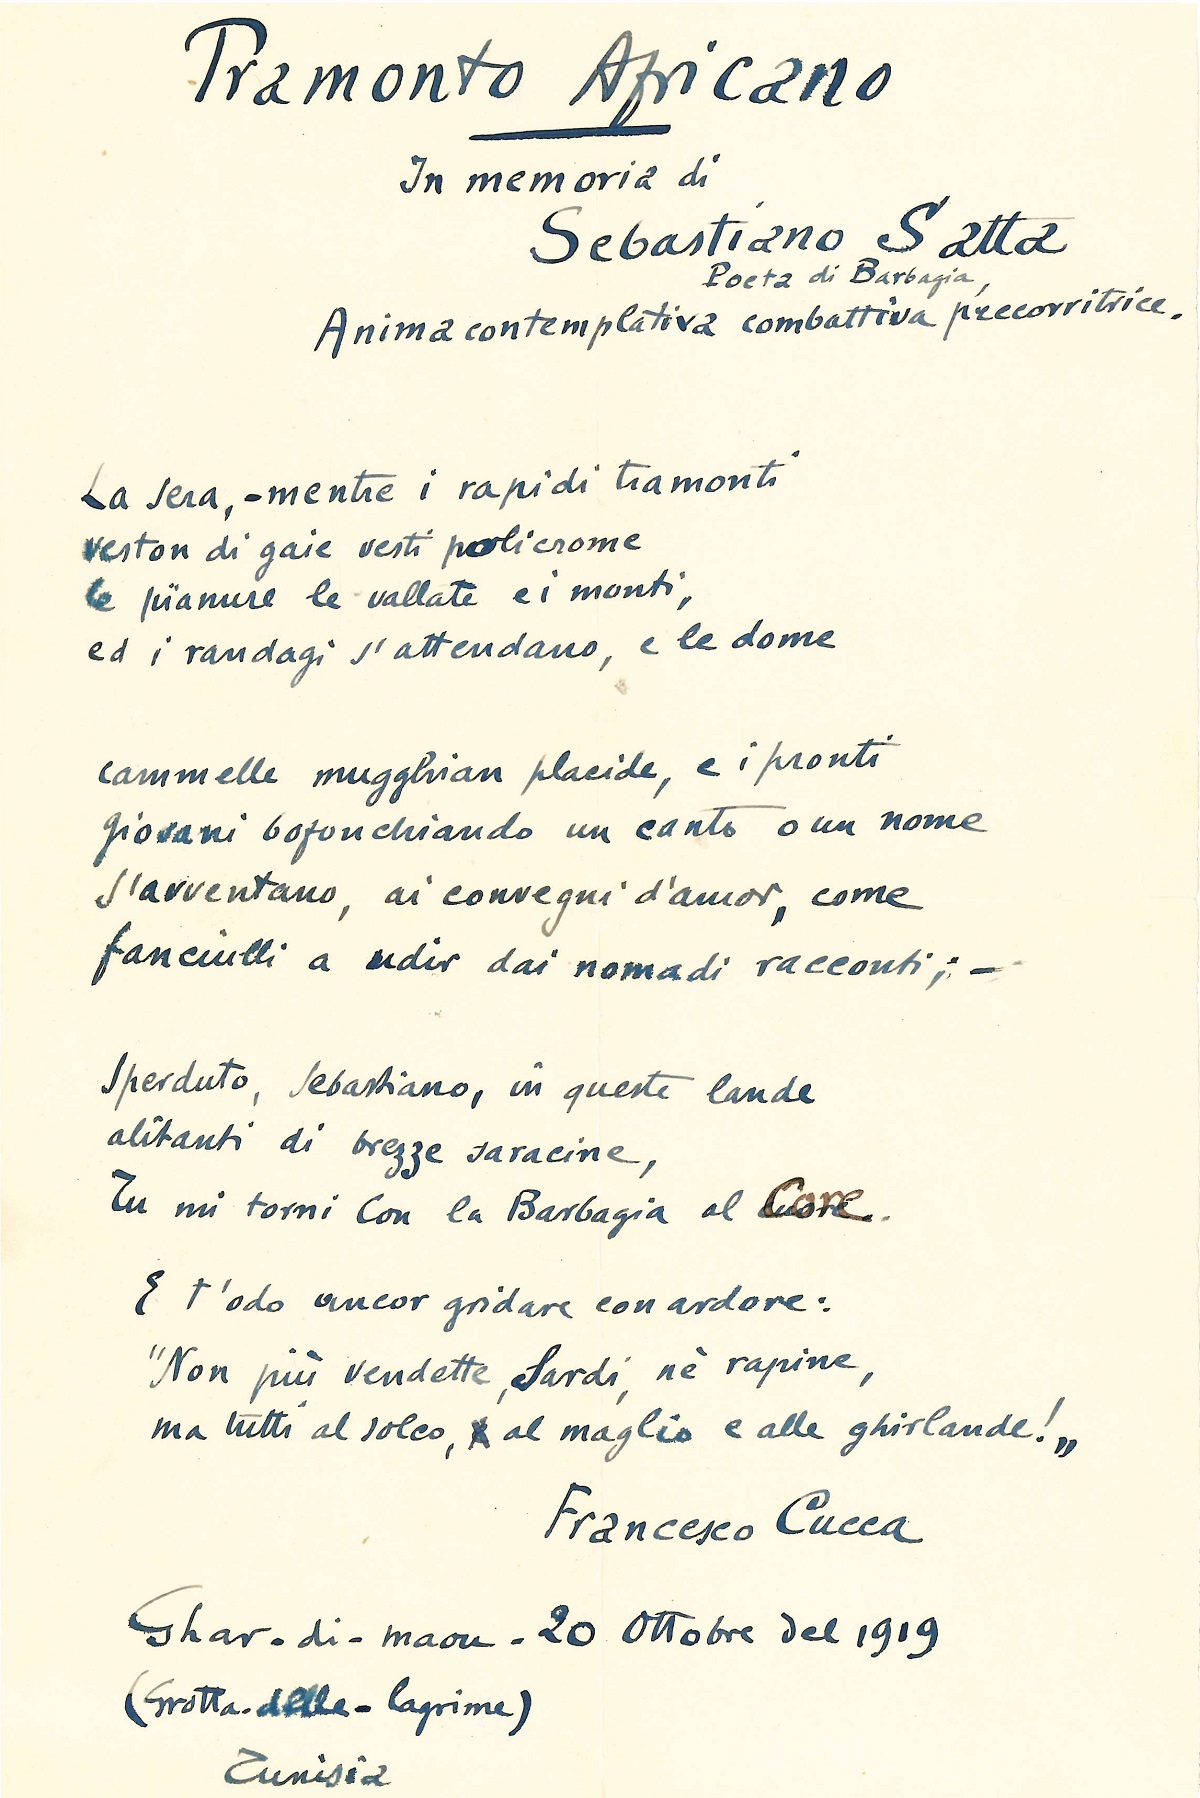 Tramonto Africano
In memoria di
Sebastiano Satta
Poeta di Barbagia,
Anima contemplativa combattiva precorritrice.
La sera, - mentre i rapidi tramonti
veston di gaie vesti policrome
le pïanure le vallate e i monti,
ed i randagi s'attendano, e le dome
cammelle mugghian placide, e i pronti
giovani bofonchiando un canto o un nome
s'avventano, ai convegni d'amor, come
fanciulli a udir dai nomadi racconti; -
Sperduto, Sebastiano, in queste lande
alitanti di brezze saracine,
Tu mi torni con la Barbagia al Core.
E t'odo ancor gridare con ardore:
"Non più vendette, Sardi, nè rapine,
ma tutti al solco, al maglio e alle ghirlande!„
Francesco Cucca
Ghar-di-maou - 20 Ottobre del 1919
(Grotta-delle-lagrime)
Tunisia